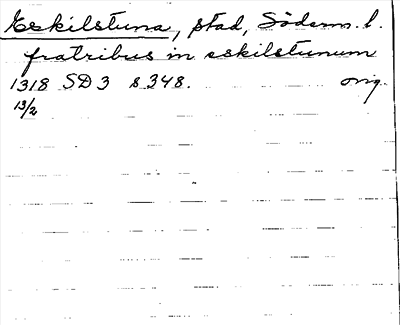 Eskilstuna, stad, Söderm. l.
fratribus in eskilstunum
1318 SD 3 s. 348. orig.
13/2